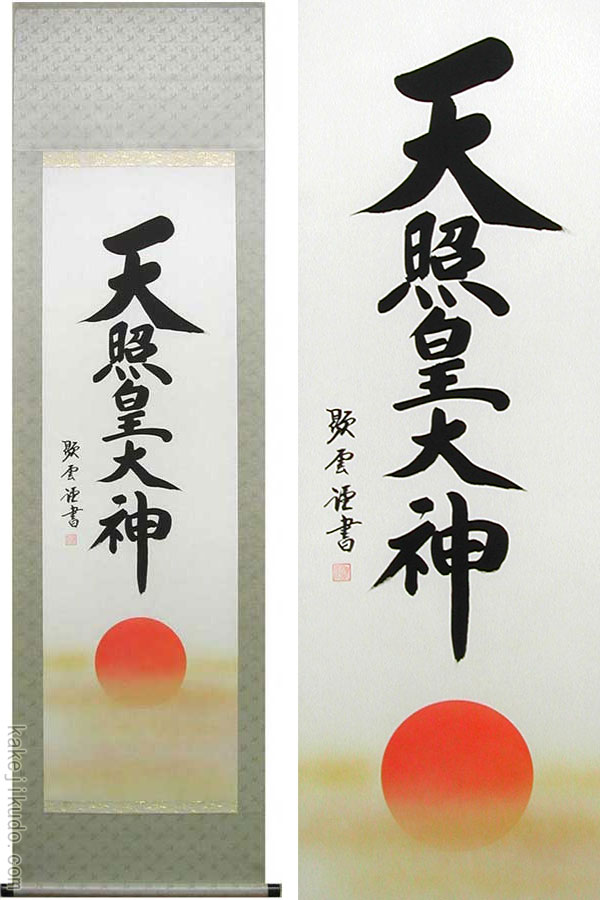 天照皇大神
顕雲謹書
天照皇大神
顕雲謹書
kakejikudo.com